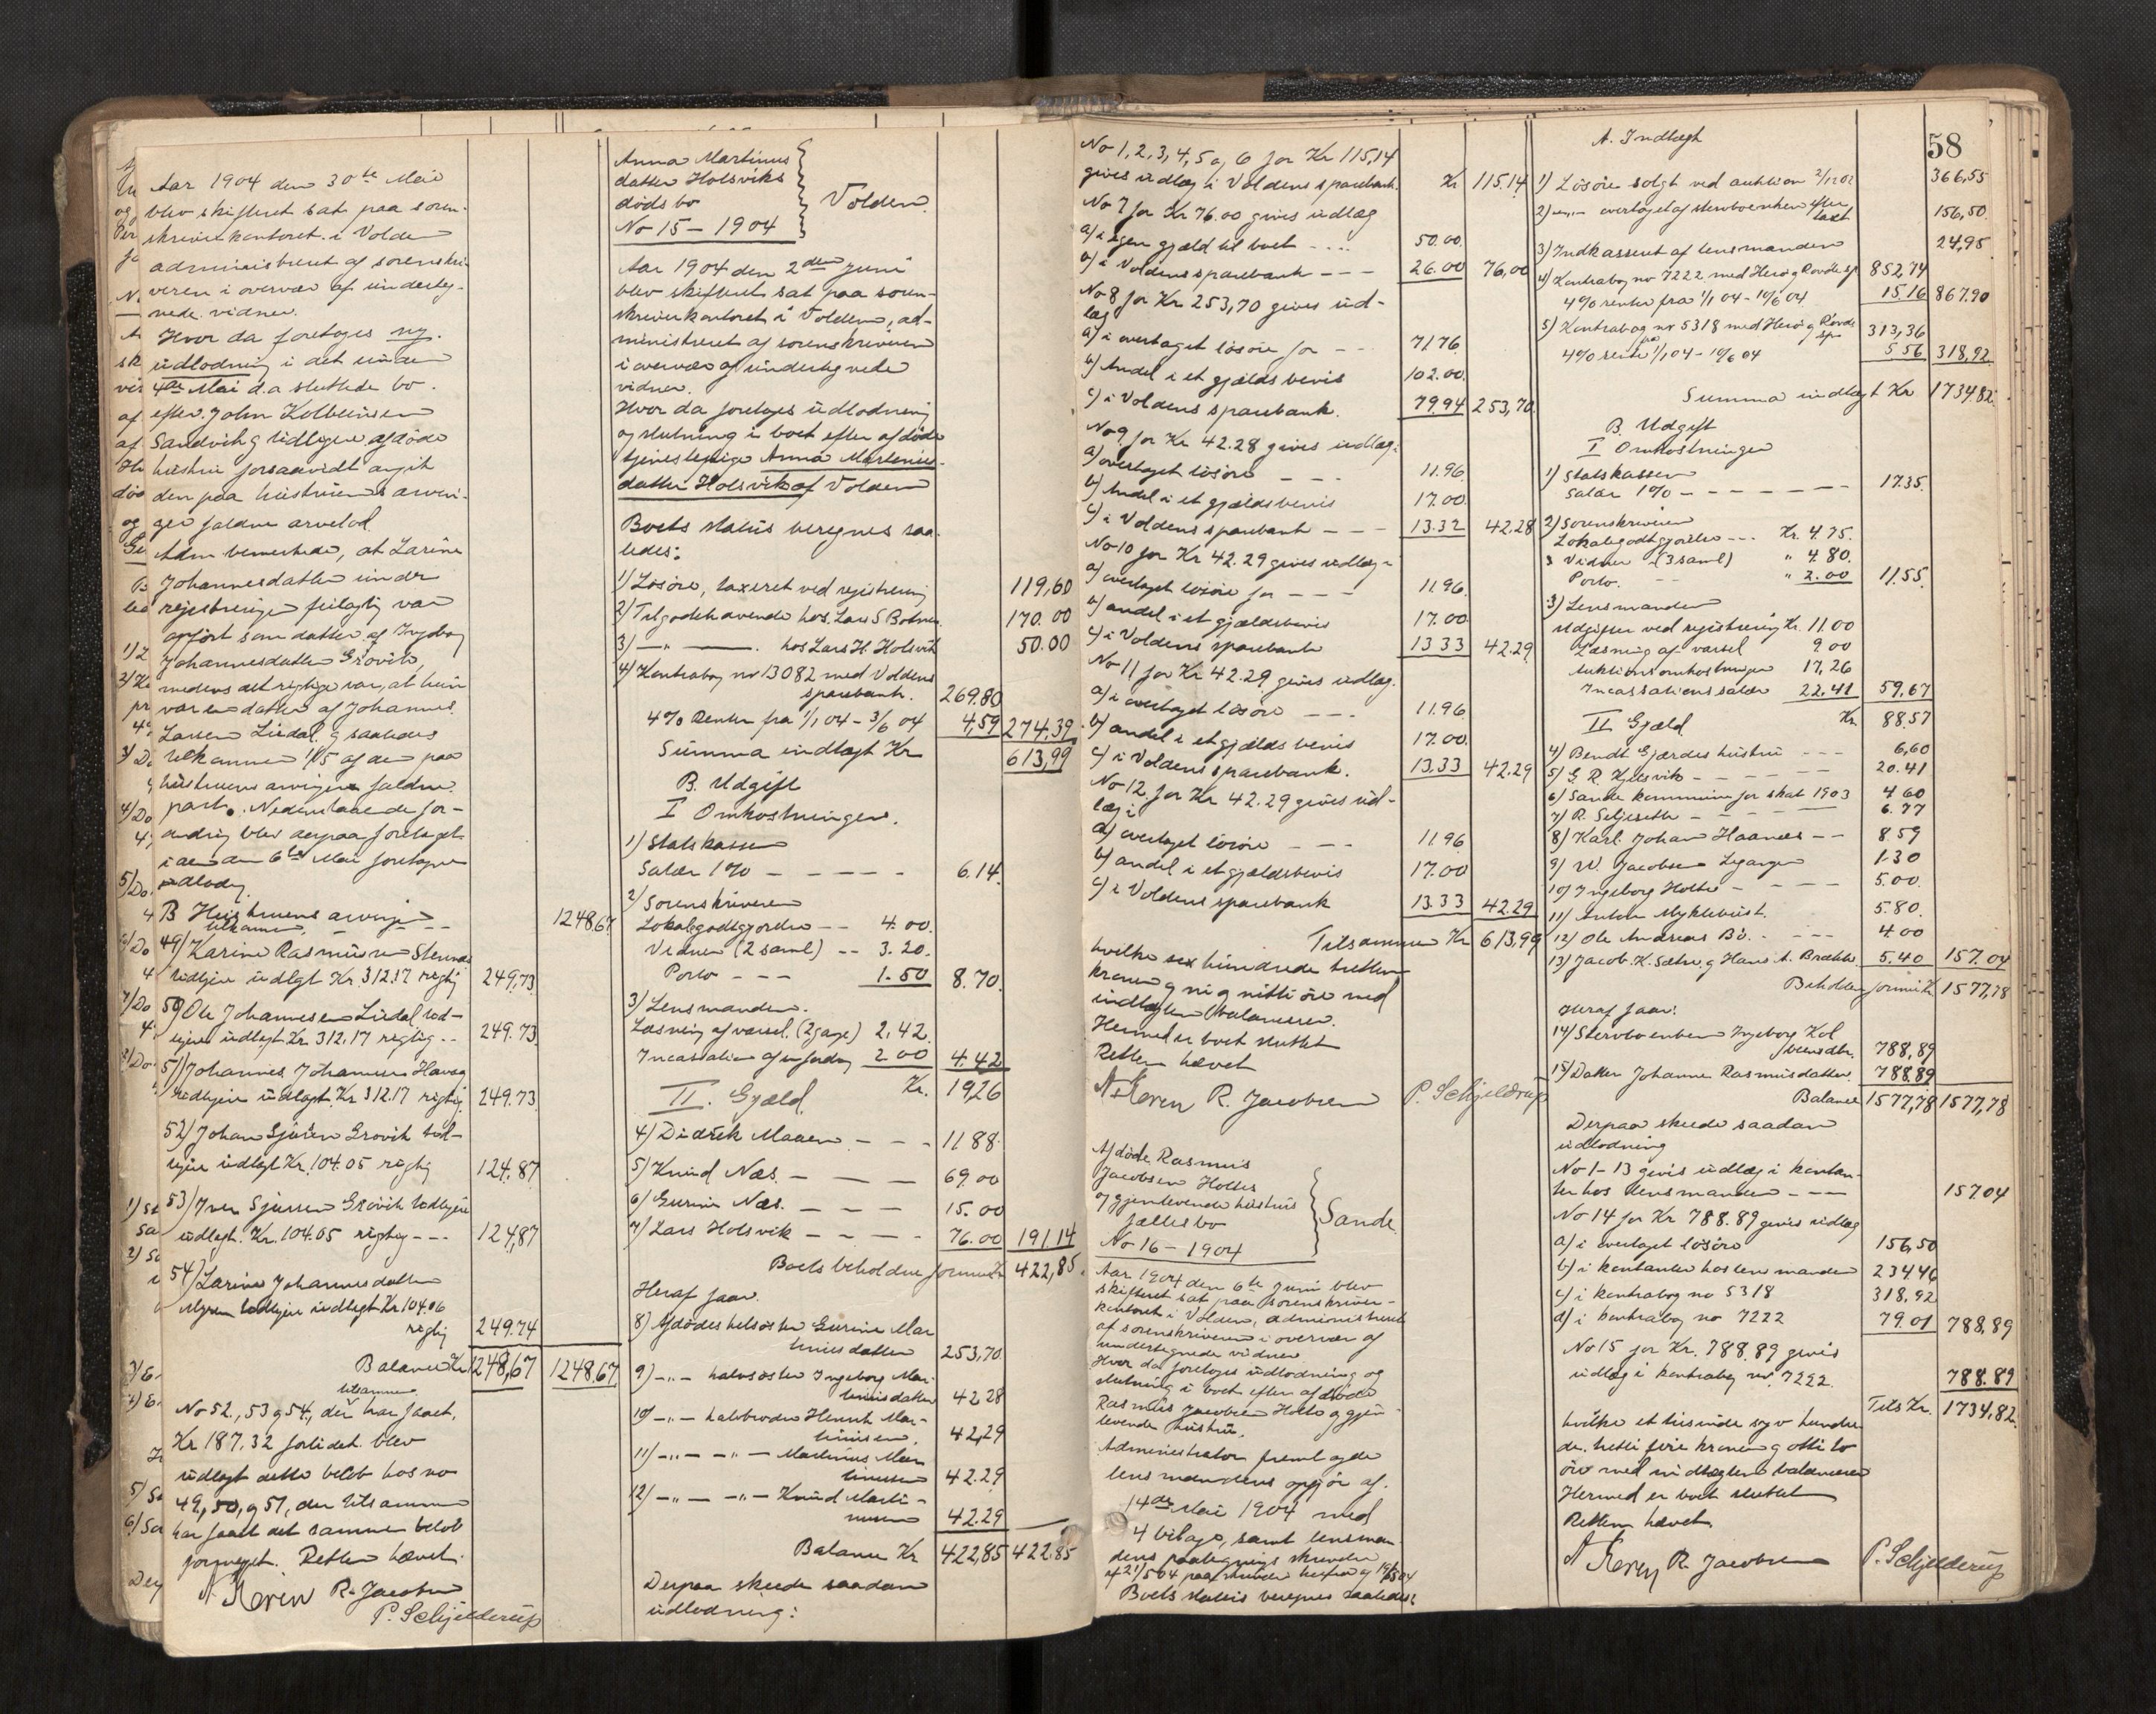 Aar 1904 den 30te Mai
blev skifteret sat paa soren-
skriverkontoret i Volden
administreret af sorenskri-
veren i overvær af underteg-
nede vidner.
Hvor da foretoges ny
udlodning i det under
4de Mai d.a sluttede bo
efter John Kolbeinsen
Sandvik og tidligere afdøde
hustru forsaavidt angik
den paa hustruens arvin-
ger faldne arvelod
Adm bemerkede, at Larine
Johannesdatter under
registreringen feilagtig var
opført som datter af Ingeborg
Johannesdatter Grøvik,
medens det rigtige var, at hun
var en datter af Johannes
Larsen Liadal og saaledes
tilkommer 1/5 af den paa
hustruens arvinger faldne
part. Nedenstaaende for-
andring blev derpaa foretaget
i den den 6te Mai foretagne
udlodng.
B Hustruens arvinger
tilkommer 1248.67
49) Karine Rasmusen
lodeier udlagt Kr. 312.17 rigtig 249.73
50) Ole Johannesen Liadal lod-
eier udlagt Kr 312.17 rigtig 249.73
51) Johannes Johannesen Havaag
lodeier udlagt Kr 312.17 rigtig 249.73
52) Johan Sjursen Grøvik lod-
eier udlagt Kr. 104.05 rigtig 124.87
53) Iver Sjursen Grøvik lodeier
udlagt Kr. 104.05 rigtig --- 124,87
54) Larine Johannesdatter
Myren lodeier udlagt Kr 104.06
rigtig 249.74
Balance Kr 1248,67 1248.67
No 52, 53 og 54, der tilsammen har faaet
Kr 187.32 forlidet blev
udlagt dette beløb hos no
49, 50, og 51, der tilsammen
har faaet det samme beløb
formeget. Retten hævet.
R. Jacobsen
P. Schjelderup
Anna Martinus
datter Holsviks
dødsbo
No 15 - 1904
Volden
Aar 1904 den 2den Juni
blev skifteret sat paa soren-
skriverkontoret i Volden, ad-
ministreret af sorenskriveren
i overvær af undertegnede
vidner.
Hvor da foretoges udlodning
og slutning i boet efter afdøde
tjenestepige Anna Martinus-
datter Holsvik af Volden
Boets status beregnes saa-
ledes:
1) Løsøre, taxeret ved registrering 119,60
2) Tilgodehavende hos Lars S Botnen 170.00
3) —"— hos Lars H. Holsvik 50.00
4) Kontrabog nr 13082 med Voldens
sparebank. 269.80
4% Renter fra 1/1 04 - 3/6 04 4,59 274,39
Summa indtægt Kr 613,99
B. Udgift
I Omkostninger.
1) Statskassen
Salær 1% - - - - - 6.14
2) Sorenskriveren
Lokalegodtgjørelse -- 4.00.
Vidner (2 saml) -- 3.20.
Porto --- 1.50 8.70
3) Lensmanden.
Læsning af varsel (2 gange) 2,42
Incassation af en fordrg 2 00 4.42
Kr. 19,26
II. Gjæld
4) Didrik Maaen - - - 11 88
5) Knud Næs. - — — 69.00
6) Gurine Næs. - — — 15.00
7) Lars Holsvik - - — - 76.00 191.14
Boets beholdne formue Kr 422,85.
Heraf faar
8) Afdødes helsøster Gurine Mar
tinusdatter 253,70
9) -"- halvsøster Ingeborg Mar-
tinusdatter 42 28
10) -"- halvbroder Henrik Mar-
tinusen. 42,29
11) -"- -"- Martinus Mar
tinussen 42.29
12) -"- -"- Knud Marti-
nusen 42.29
Balance Kr 422,85 422.85
Derpaa skeede saadan
udlodning:
No 1, 2, 3, 4, 5 og 6 for Kr 115,14
gives udlæg i Voldens sparebank. Kr 115.14
No 7 for Kr 76.00 gives udlæg
a) i egen gjæld til boet ---- 50.00.
b) i Voldens sparebank --- 26.00 76,00
No 8 for Kr 253,70 gives ud-
læg
a) i overtaget løsøre for -- 71 76
b) Andel i et gjældsbevis 102.00
c) i Voldens sparebank. 79.94 253,70
No 9 for Kr 42.28 gives udlæg:
a) overtaget løsøre --- 11.96
b) Andel i et gjældsbevis 17.00
c) i Voldens sparebank --- 13.32 42.28
No 10 for Kr 42.29 gives udlæg:
a) overtaget løsøre for --- 11.96
b) andel i et gjældsbevis 17.00
c) i Voldens sparebank 13 33 42.29
No 11 for Kr 42.29 gives udlæg
a) i overtaget løsøre --- 11.96
b) andel i et gjældsbevis 17.00
c) i Voldens sparebank. 13.33 42.29
No 12 for Kr 42.29 gives ud-
læg i
a) overtaget løsøre --- 11.96
b) andel i et gjældsbevis 17.00
c) i Voldens sparebank 13.33 42.29
Tilsammen Kr 613,99
hvilke sex hundrede tretten
kroner og ni og nitti øre med
indtægten balancerer.
Hermed er boet sluttet
Retten hævet
R. Jacobsen P. Schjelderup
Afdøde Rasmus
Jacobsen Holtes
og gjenlevende hustrus
fællesbo
No 16 - 1904
Sande
Aar 1904 den 6te Juni blev
skifteret sat paa sorenskriver-
kontoret i Volden, administreret
af sorenskriveren i overvær af
undertegnede vidner
Hvor da foretoges udlodning og
slutning i boet efter afdøde
Rasmus Jacobsen Holte og gjen-
levende hustru.
Administrator fremlagde
lensmandens opgjør af
14de Mai 1904 med
4 bilage, samt lensman-
dens paategnings skrivelse
Boets status beregnes saaledes:
58
A. Indtægt
1) Løsøre solgt ved auktion 366,55
2) -"- overtaget af stervboenken efter
taxt 156,50
3) Indkasseret af lensmanden 24,95
4) Kontrabog nr 7222 med Herø og Rovde sp 852,74
4% renter fra 1/1 04 - 10/6 04 15.16 867.90
5) Kontrabog nr 5318 med Herø og Rovde
sp. 313,36
4% rente fra 1/1 04 - 10/6 04 5 56 318,92
Summa indtægt Kr 1734.82
B. Udgift
I Omkostninger
1) Statskassen
Salær 1% - - - - - — 17.35
2) Sorenskriveren
Lokalegodtgjørelse --- Kr. 4.75.
Vidner (3 saml) " 4.80.
Porto. -- " 2.00 11.55
3) Lensmanden
Udgifter ved registrering Kr. 11 00
Læsning af varsel 9 00
Auktionsomkostninger 17,26
Incassationssalær 22,41 59,67
Kr. 88,57
II Gjæld
4) Bendt Gjærdes hustru --- 6,60
5) G. R. Kjelsvik - - - - - 20.41
6) Sande kommune for skat 1903 4 60
7) R. Seljeseth - - — - - 6.77
8) Karl Johan Haanes -- 8 59
9) W. Jacobsen Legangen 1.30
10) Ingeborg Holte - - - - 5.00.
11) Anton Myklebust. 5.80.
12) Ole Andreas Bö. - --- 4.00
13) Jacob K. Sætre og Hans A. Brække 5.40 157.04
Beholden formue Kr 1577,78
Heraf faar:
14) Stervboenken Ingeborg Kol
beinsdtr. 788,89
15) Datter Johanne Rasmusdatter 788.89
Balance 1577,78 1577,78
Derpaa skeede saadan
udlodning
No 1-13 gives udlæg i kontan-
ter hos lensmanden --- 157 04
No 14 for Kr 788.89 gives udlæg
a) i overtaget løsøre 156,50
b) i kontanter hos lensmanden 234.46
c) i kontrabog no 5318 318,92
d) i kontrabog no 7222 79.01 788,89
No 15 for Kr. 788.89 gives
udlæg i kontrabog nr. 7222. 788.89
Tils Kr. 1734,82
hvilke et tusinde syv hundre-
de tretti fire kroner og otti to
øre med indtægten balancerer
Hermed er boet sluttet
Retten hævet.
R. Jacobsen P. Schjelderup